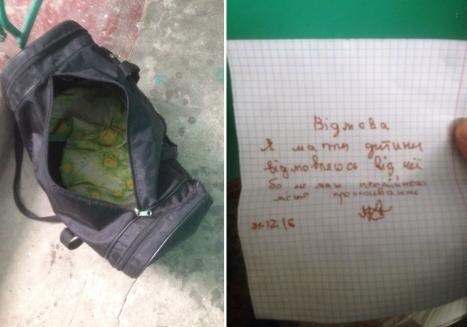 Відмова
Я мати дитини
відмовляюсь від неї
бо не маю постійного
місця проживання